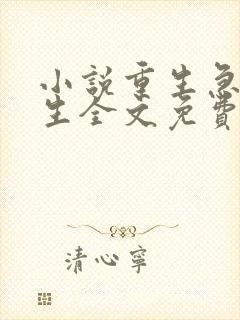 小說重生急
生全文免費
清心寧